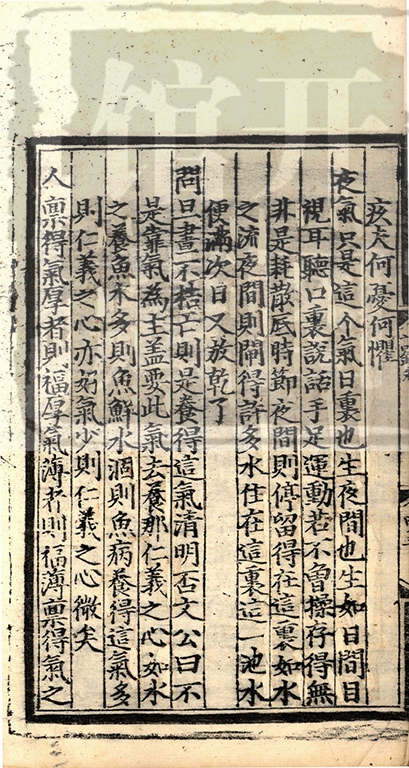 疚夫何憂何懼
夜氣只是這个氣日裏也生夜間也生如日間目
視耳聽口裏說話手足運動若不曾操存得無
非是耗散底時節夜間則停留得在這裏如水
之流夜間則閘得許多水住在這裏這一池水
便滿次日又放乾了
問旦晝不梏亡則是養得這氣清明否文公曰不
是靠氣為主蓋要此氣去養那仁義之心如水
之養魚水多則魚鮮水涸則魚病養得這氣多
則仁義之心亦好氣少則仁義之心微矣
人禀得氣厚者則福厚氣薄者則福薄禀得氣之